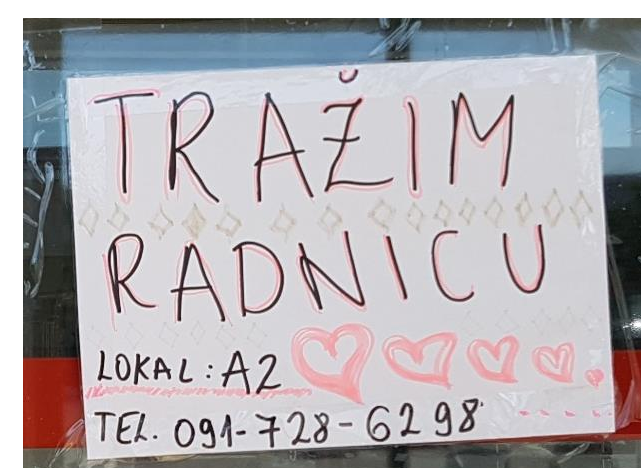 TRAŽIM
RADNICU
LOKAL: A2
TEL. 091-728-6298